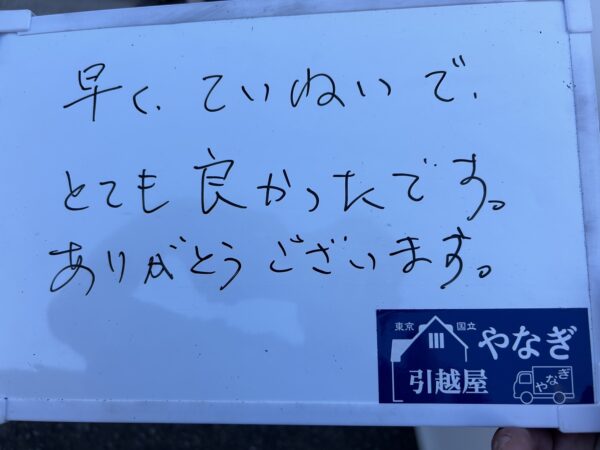 早く、ていねいで、
とても良かったです。
ありがとうございます。
東京 国立 やなぎ
引越屋 やなぎ